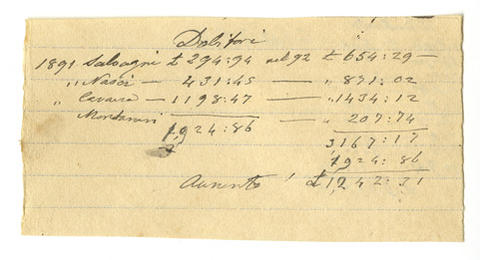 Debitori
1891 Salvagni £ 294:94 nel 92 £ 654:29 —
„ Nasci — 431:45 — „ 871:02
„ Cavara — 1198:47 — „ 1434:12
Montanari — „ 207:74
1,924:86
3167:17
1924:86
Aumento £ 1,242:31